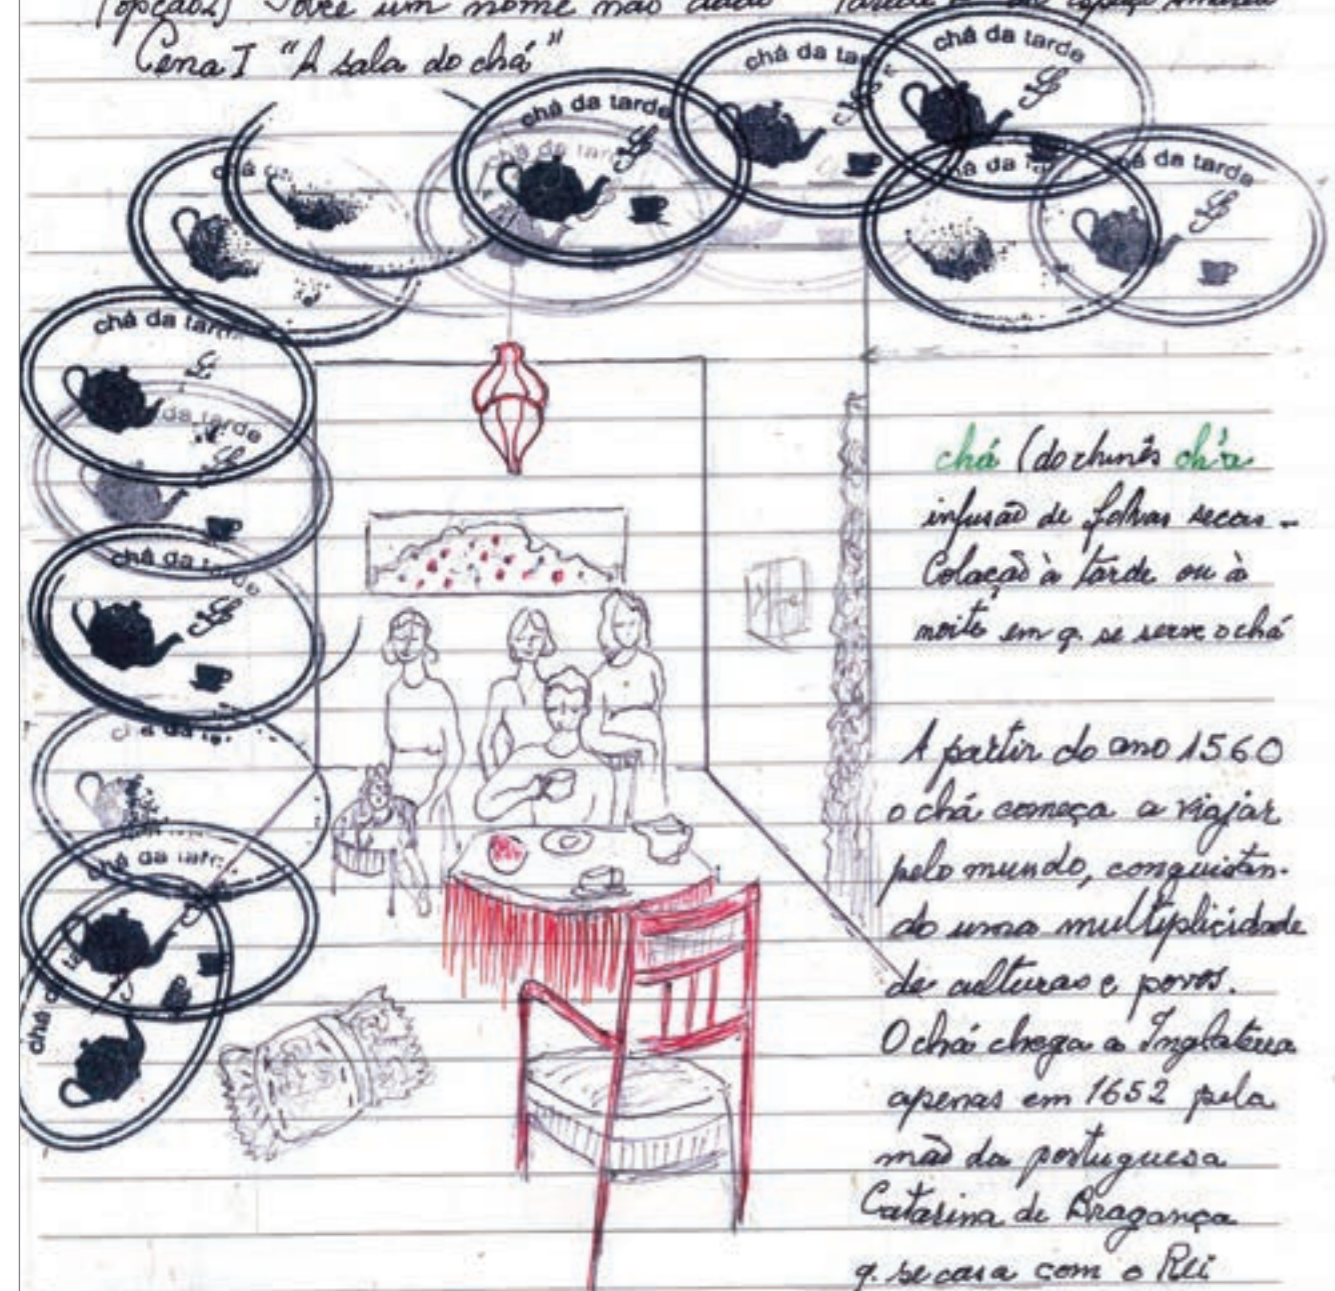 (opção2) Sobre um nome não dado
Cena I "A sala do chá"
chá da tarde
chá da tarde
chá da tarde
chá da tarde
chá da tarde
chá da
chá (do chinês ch'a
infusão de folhas secas -
Colação à tarde ou à
noite em q. se serve o chá
A partir do ano 1560
o chá começa a viajar
pelo mundo, conquistan-
do uma multiplicidade
de culturas e povos.
O chá chega a Inglaterra
apenas em 1652 pela
mão da portuguesa
Catarina de Bragança
q. se casa com o Rei